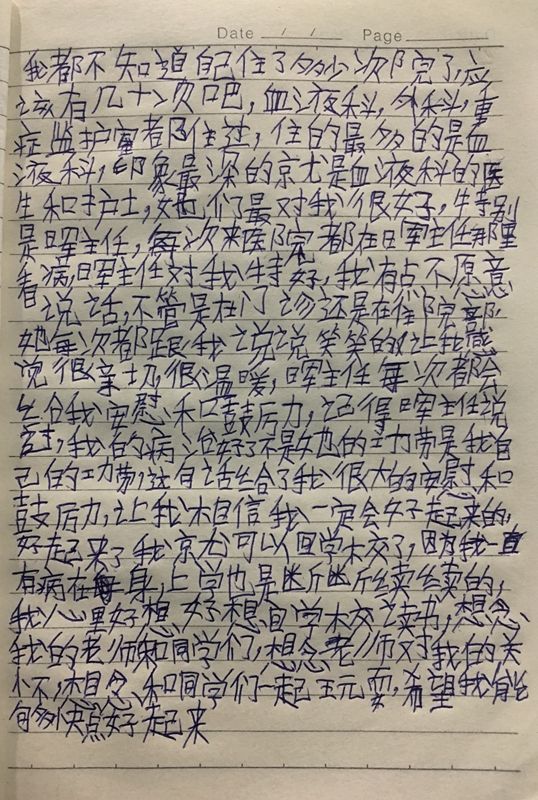 Date / / Page
我都不知道自己住了多少次院了,应
该有几十次吧,血液科,外科,重
症监护室都住过,住的最多的是血
液科,印象最深的就是血液科的医
生和护士,她们最对我很好,特别
是晖主任,每次来医院都在晖主任那里
看病,晖主任对我特好,我有点不愿意
说话,不管是在门诊还是在住院部,
她每次都跟我说说笑笑的让我感
觉很亲切,很温暖,晖主任每次都会
给我安慰和鼓励,记得晖主任说
过,我的病治好了不是她的功劳是我自
己的功劳,这句话给了我很大的安慰和
鼓励,让我相信我一定会好起来的,
好起来了我就可以回学校了,因为我一直
有病在身,上学也是断断续续的,
我心里好想好想回学校读书,想念
我的老师和同学们,想念老师对我的关
怀,想念和同学们一起玩耍,希望我能
够快点好起来